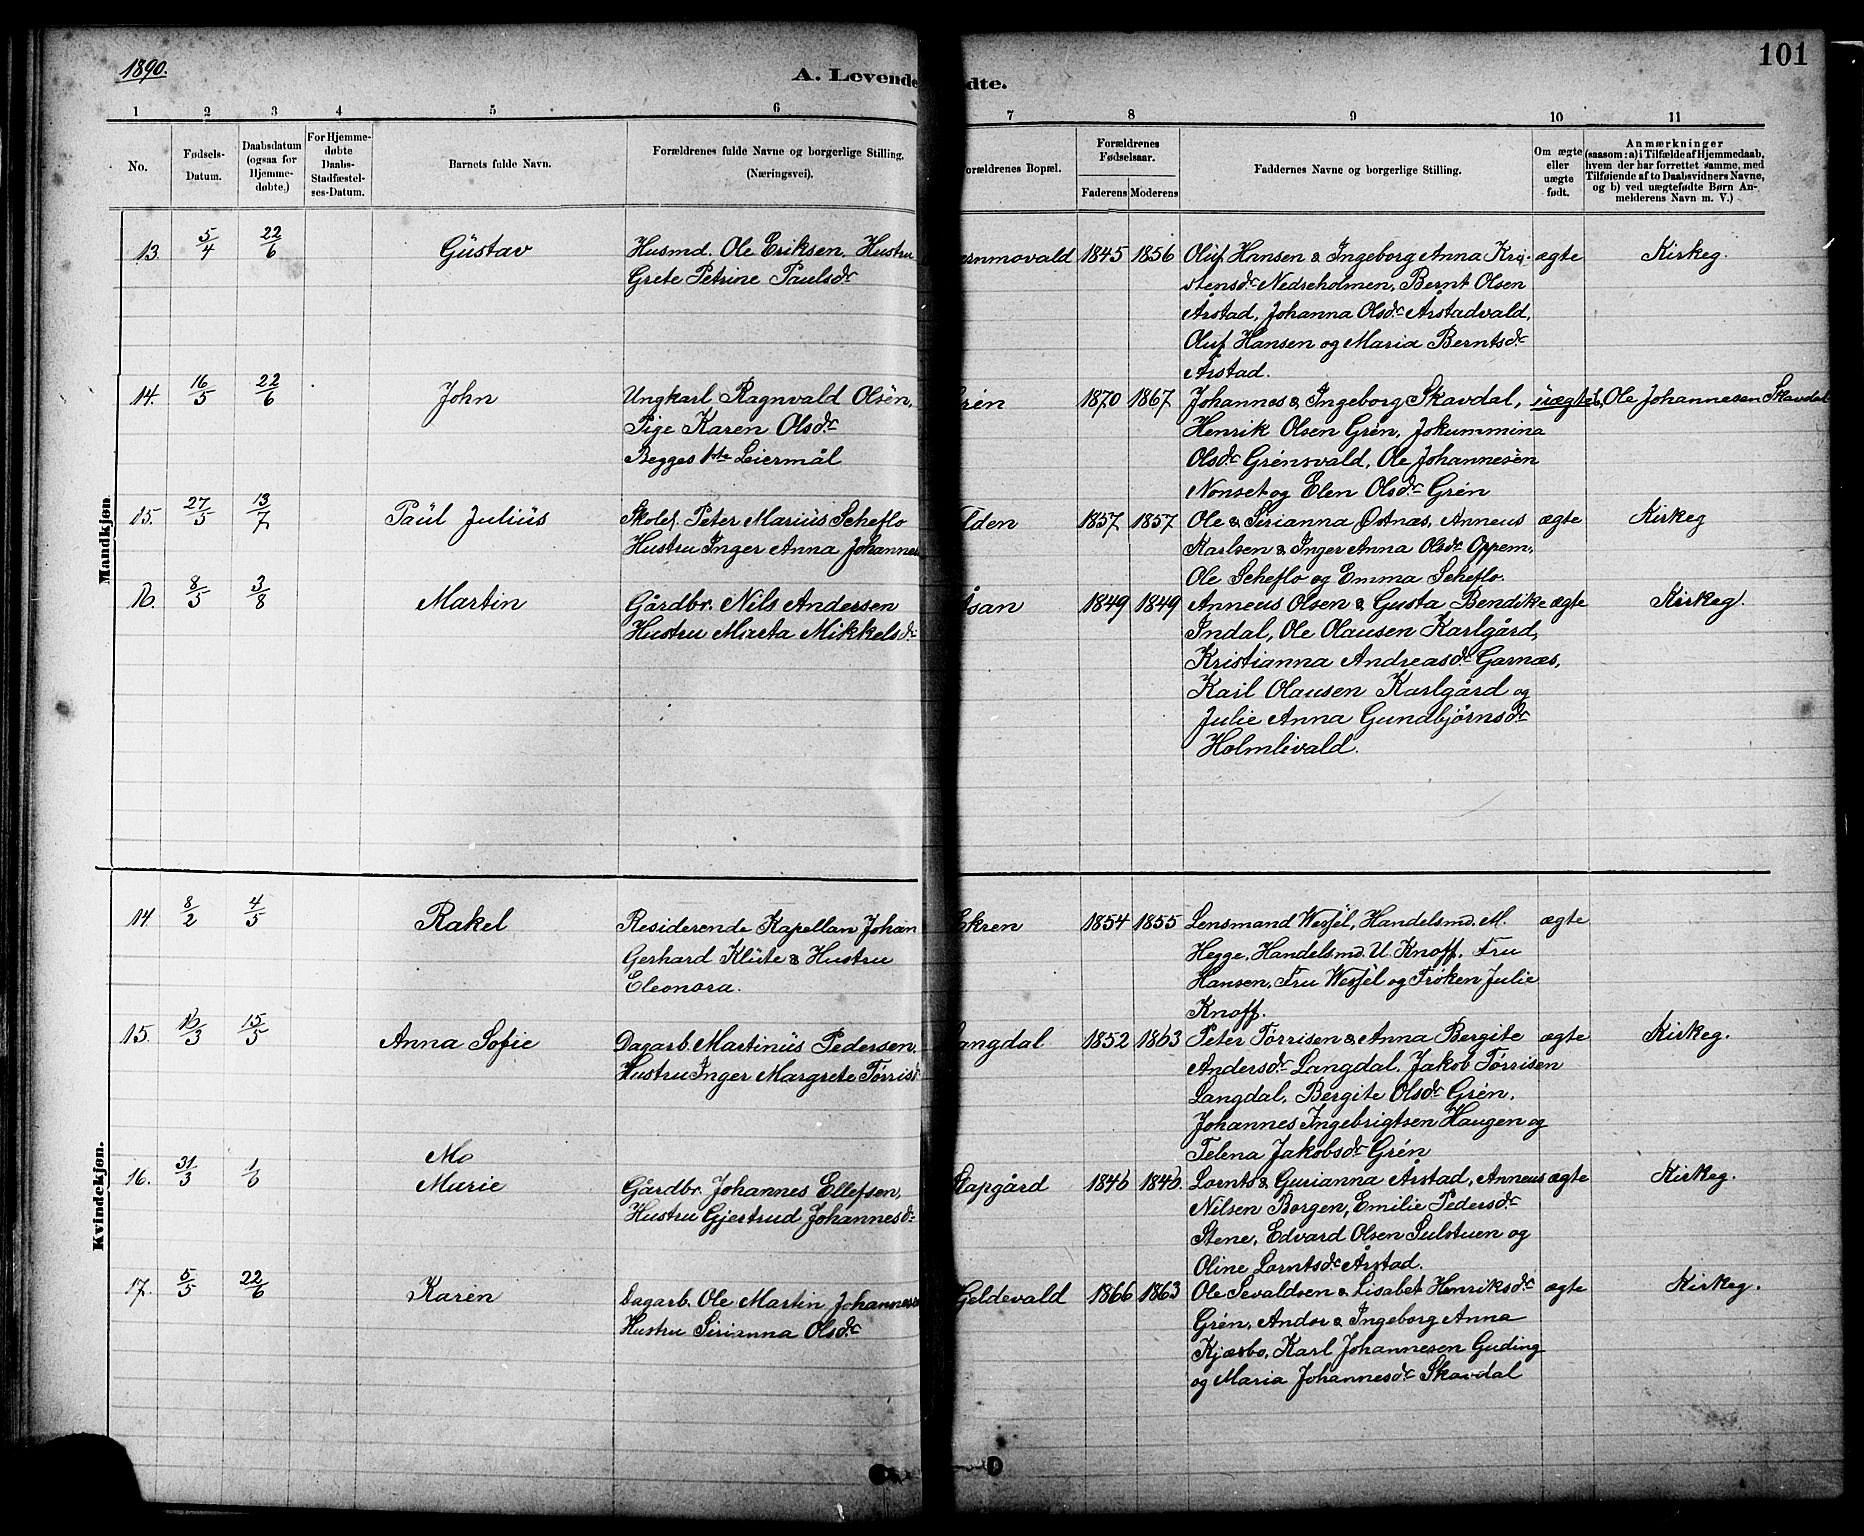 1890.
A. Levende
dte.
101
1 2 3 4 5 6 7 8 9 10 11
No.
Fødsels-
Datum.
Daabsdatum
(ogsaa for
Hjemme-
døbte,)
For Hjemme-
døbte
Daabs-
Stadfæstel-
ses-Datum.
Barnets fulde Navn.
Forældrenes fulde Navne og borgerlige Stilling,
(Næringsvei).
Forældrenes Bopæl.
Forældrenes
Fødselsaar.
Faderens Moderens
Faddernes Navne og borgerlige Stilling.
Om ægte
eller
uægte
født.
Anmærkninger
(saasom: a) i Tilfælde af Hjemmedaab,
hvem der har forrettet samme, med
Tilføiende af to Daabsvidners Navne,
og b) ved uægtefødte Børn An-
melderens Navn m. V.)
Mandkjøn
13. 5/4 22/6 Gustav Husmd. Ole Eriksen, Hustru ernmovald 1845 1856 Oluf Hansen & Ingeborg Anna Kri- ægte Kirkeg.
Grete Petrine Paulsdr stensdr Nedreholmen, Bernt Olsen
Årstad, Johanna Olsdr Årstadvald,
Oluf Hansen og Maria Berntsdr
Årstad.
14. 16/5 22/6 John Ungkarl Ragnvald Olsen, Grén 1870 1867 Johannes & Ingeborg Skavdal, uægte, Ole Johannesen Skavdal
Pige Karen Olsdr Henrik Olsen Grén, Jokummina
Begges 1ste Leiermål Olsdr Grénsvald, Ole Johannesen
Nonset og Elen Olsdr Grén
15. 27/5 13/7 Paul Julius Skolel. Peter Marius Scheflo lden 1857 1857 Ole & Sirianna Østnæs, Anneus ægte Kirkeg
Hustru Inger Anna Johannes Karlsen & Inger Anna Olsdr Oppem,
Ole Scheflo og Emma Scheflo.
16. 8/5 3/8 Martin Gårdbr. Nils Andersen Åsan 1849 1849 Anneus Olsen & Gusta Bendike ægte Kirkeg.
Hustru Marta Mikkelsdr Indal, Ole Olausen Karlgård,
Kristianna Andreasdr Garnæs,
Karl Olausen Karlgård og
Julie Anna Gundbjørnsdr
Holmlivald.
Kvindekjøn.
14. 8/2 4/5 Rakel Residerende Kapellan Johan Ekren 1854 1855 Lensmand Wessel, Handelsmd. M. ægte
Gerhard Klüte & Hustru Hegge, Handelsmd. U. Knoff, Fru
Eleonora. Hansen, Fru Wessel og Frøken Julie
Knoff.
15. 16/3 15/5 Anna Sofie Dagarb. Martinus Pedersen, Langdal 1852 1863 Peter Tørrisen & Anna Bergite ægte Kirkeg.
Hustru Inger Margrete Tørrisd Andersdr Langdal, Jakob Tørrisen
Langdal, Bergite Olsdr Grén,
Johannes Ingebrigtsen Haugen og
Telena Jakobsdr Grén
Mo
16. 31/3 1/6 Murie Gårdbr. Johannes Ellefsen, Slapgård 1846 1846 Lornts & Gurianna Årstad, Anneus ægte Kirkeg.
Hustru Gjertrud Johannesdr Nilsen Borgen, Emilie Pedersdr
Stene, Edvard Olsen Sulstuen og
Oline Lorntsdr Årstad.
17. 5/5 22/6 Karen Dagarb. Ole Martin Johannesen Geldevald 1866 1863 Ole Sevaldsen & Lisabet Henriksdr ægte Kirkeg.
Hustru Sirianna Olsdr Grén, Andor & Ingeborg Anna
Kjæsbo, Karl Johannesen Guding
og Maria Johannesdr Skavdal